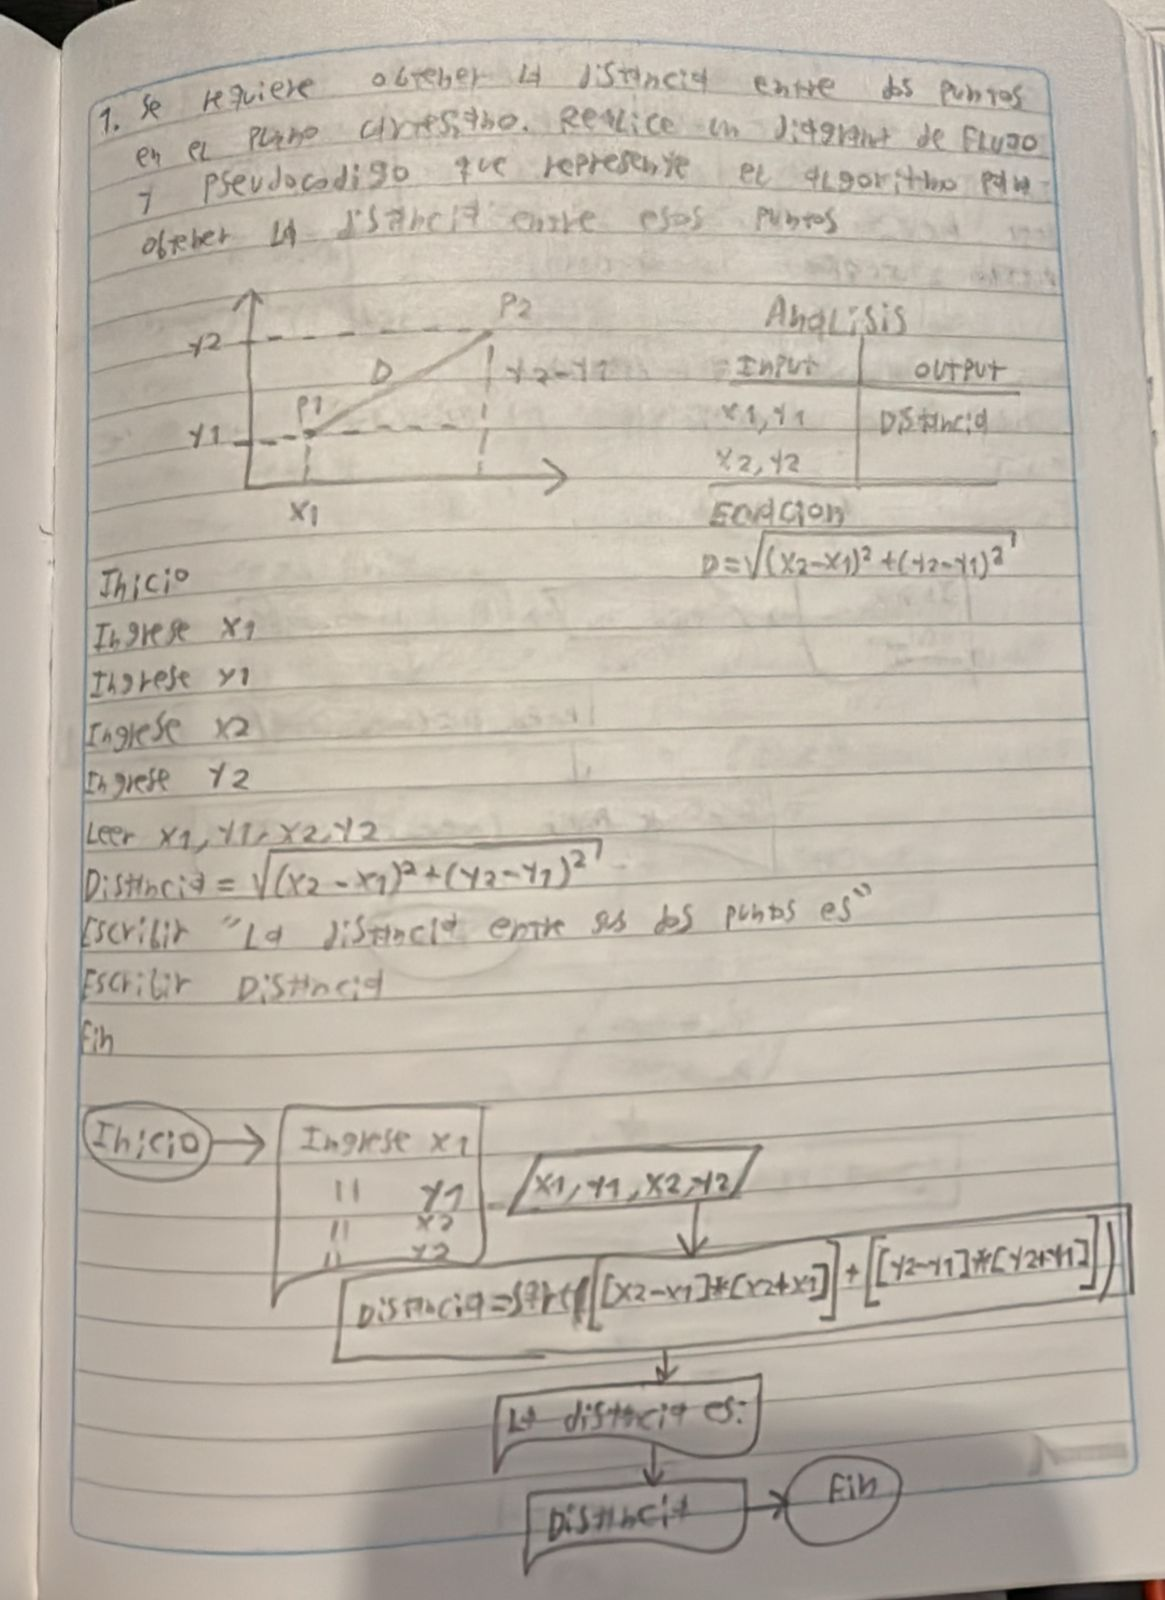 1. Se requiere obtener la distancia entre dos puntos
en el plano cartesiano. Realice un diagrama de Flujo
y pseudocodigo que represente el algoritmo para
obtener la distancia entre esos puntos
P2
Y2
D
Y2-Y1
P1
Y1
X1
Analisis
Input Output
X1, Y1 Distancia
X2, Y2
Ecuacion
D=√(X2-X1)²+(Y2-Y1)²
Inicio
Ingrese X1
Ingrese Y1
Ingrese X2
Ingrese Y2
Leer X1, Y1, X2, Y2
Distancia = √(X2-X1)²+(Y2-Y1)²
Escribir "La distancia entre sus dos puntos es"
Escribir Distancia
Fin
Inicio
Ingrese X1
" Y1
" X2
" Y2
X1, Y1, X2, Y2
Distancia=sqrt([[X2-X1]*[X2+X1]]+[[Y2-Y1]*[Y2+Y1]])
La distancia es:
Distancia
Fin